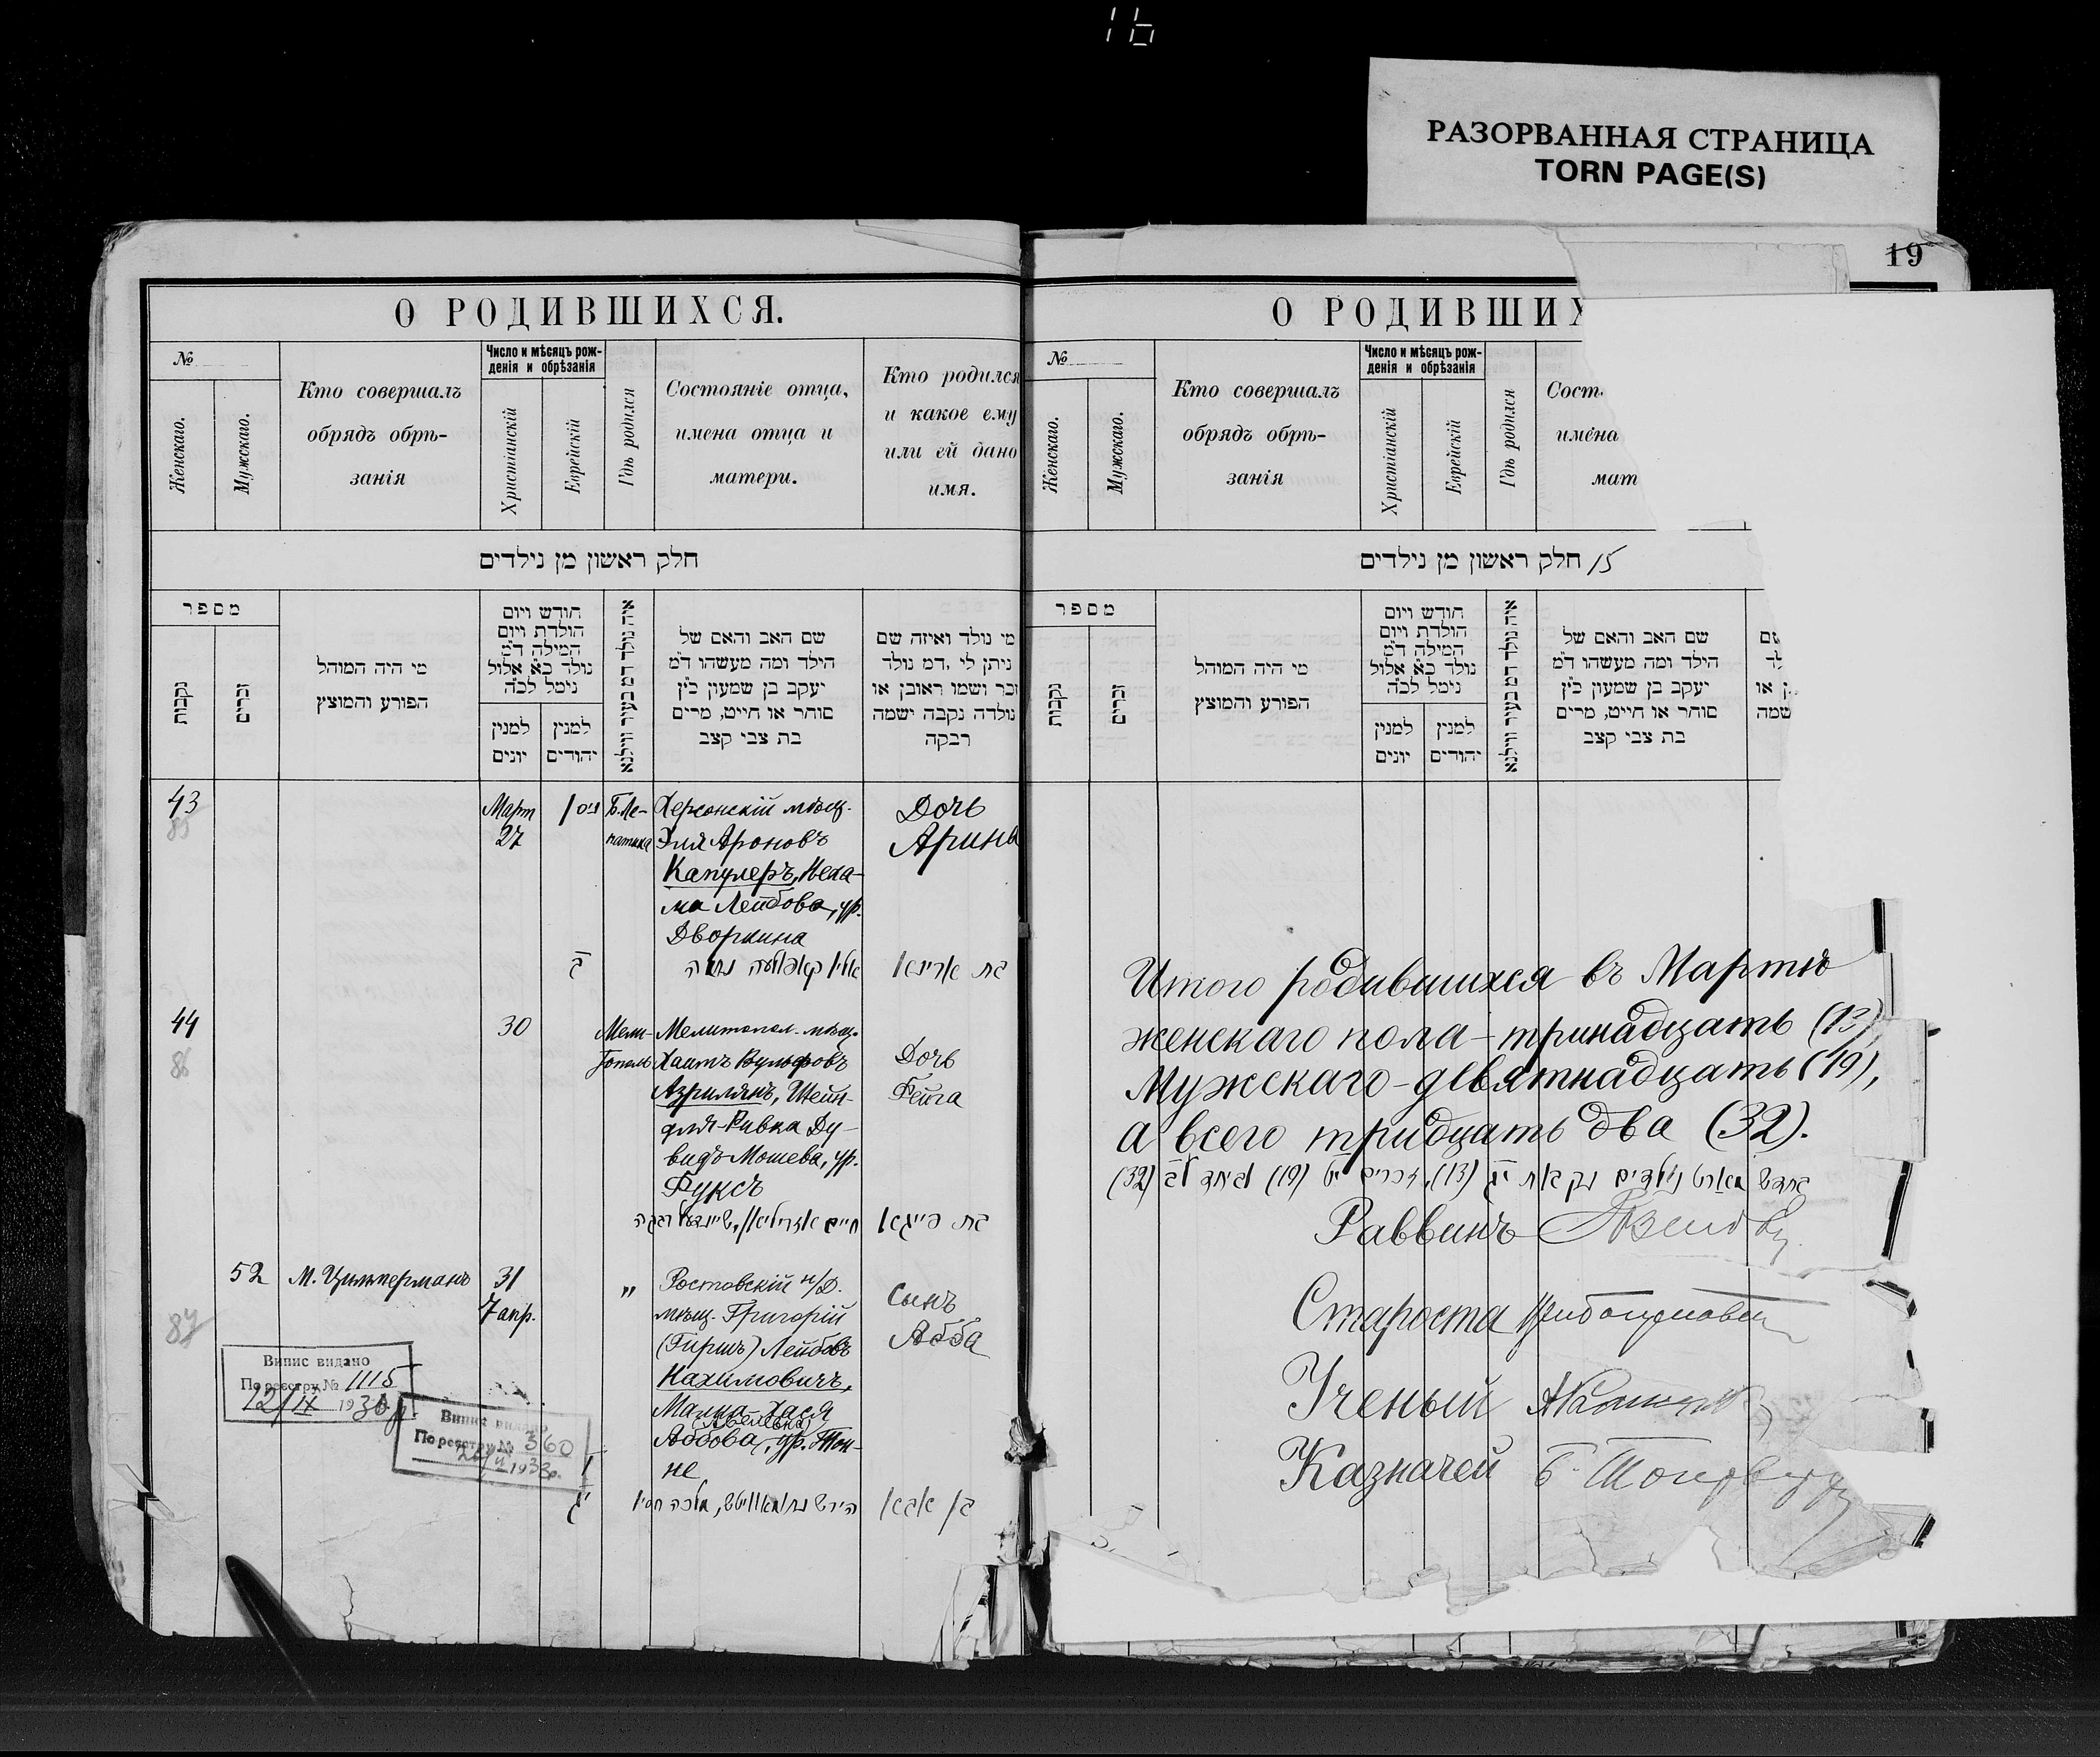 16
РАЗОРВАННАЯ СТРАНИЦА
TORN PAGE(S)
19
О РОДИВШИХСЯ.
№
Женскаго.
Мужскаго.
Кто совершалъ
обрядъ обрѣ-
занія
Число и мѣсяцъ рож-
денія и обрѣзанія
Христіанскій
Еврейскій
Гдѣ родился
Состояніе отца,
имена отца и
матери.
Кто родился
и какое ему
или ей дано
имя.
חלק ראשון מן נילדים
מספר
נקבות
זכרים
מי היה המוהל
הפורע והמוצץ
חודש ויום
הולדת ויום
המילה ד״מ
נולד כ״א אלול
נימל לכ״ה
למנין
יונים
למנין
יהודים
איה נולד דמ בעיר ווילנא
שם האב והאם של
הילד ומה מעשהו ד״מ
יעקב בן שמעון כ״ץ
סוחר או חייט, מרים
בת צבי קצב
מי נולד ואיזה שם
ניתן לי ,דמ נולד
זכר ושמו ראובן או
נולדה נקבה ישמה
רבקה
43
85
Март
27
ניס
Б.Ле-
патиха
Херсонскій мѣщ.
Эля Ароновъ
Капулеръ, Неха-
ма Лейбова, ур.
Дворкина
Дочь
Арина
ג
בת ארינא
44
86
30
Мели-
тополь
Мелитопол. мѣщ.
Хаимъ Вульфовъ
Азрилянъ, Шейн-
для-Ривка Ду-
видъ-Мошева, ур.
Фуксъ
Дочь
Фейга
חיים אזריליאן, שיינדעל רבקה
בת פייגא
52
87
М. Цимерманъ
31
7 апр.
"
Ростовскій н/Д.
мѣщ. Григорій
(Гиршъ) Лейбовъ
Нахимовичъ,
Малка-Хася
Аббова, ур. Тон-
не
Сынъ
Абба
Випис видано
По реєстру № 1115
12/IX 1930 р.
Випис видано
По реєстру № 360
1933р.
יג
הירש נחימאוויטש, מלכה חסיא
בן אבא
О РОДИВШИХ
№
Женскаго.
Мужскаго.
Кто совершалъ
обрядъ обрѣ-
занія
Число и мѣсяцъ рож-
денія и обрѣзанія
Христіанскій
Еврейскій
Гдѣ родился
Сост
имена
мат
חלק ראשון מן נילדים 15
מספר
נקבות
זכרים
מי היה המוהל
הפורע והמוצץ
חודש ויום
הולדת ויום
המילה ד״מ
נולד כ״א אלול
נימל לכ״ה
למנין
יונים
למנין
יהודים
איה נולד דמ בעיר ווילנא
שם האב והאם של
הילד ומה מעשהו ד״מ
יעקב בן שמעון כ״ץ
סוחר או חייט, מרים
בת צבי קצב
Итого родившихся въ Мартѣ
женскаго пола – тринадцать (13)
Мужскаго – девятнадцать (19),
а всего тридцать два (32).
בחדש מארט נולדים נקבות יג (13), זכרים יט (19) וביחד לב (32)
Раввинъ
Староста
Ученый
Казначей